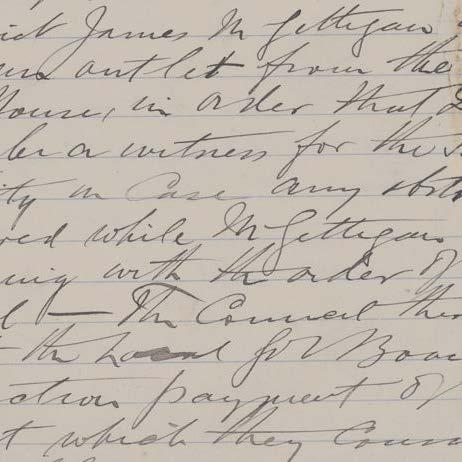 James McGettigan
outlet from the
House, in order that
be a witness for the
in Case any
while McGettigan
with the order of
— The Council
the Local Govt Boar
payment of
which they Cons